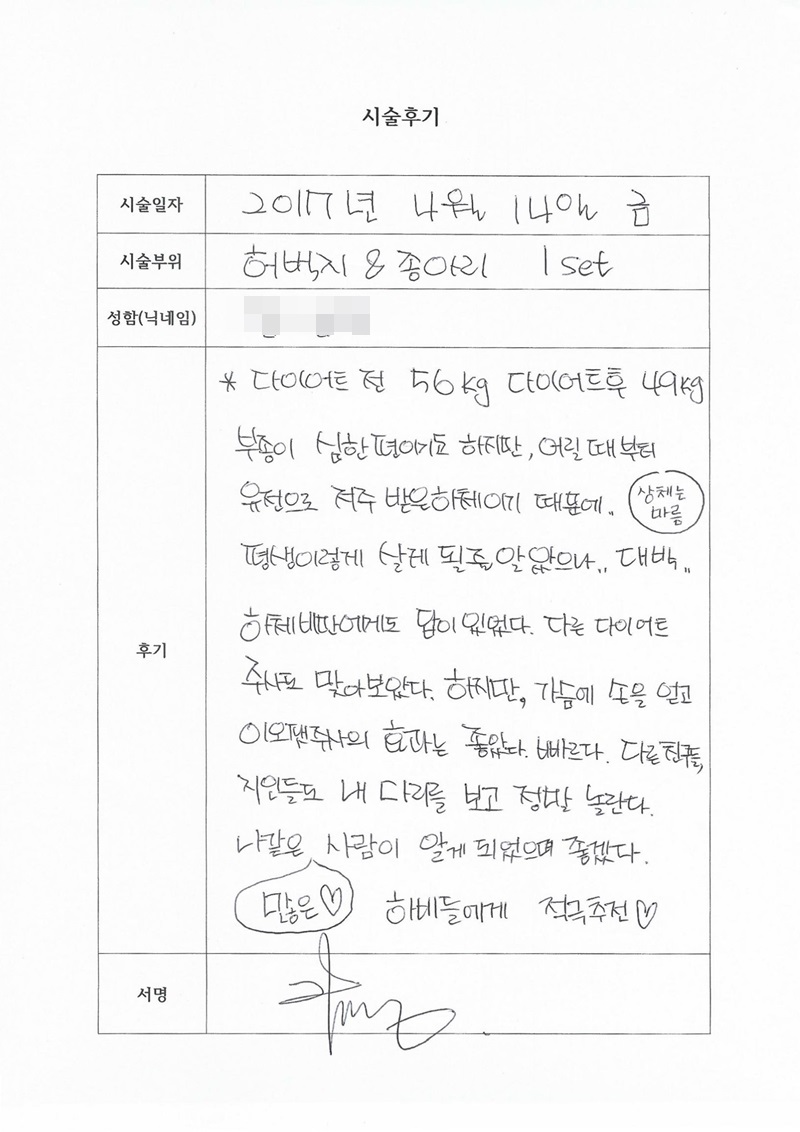 시술후기
시술일자 2017년 4월 14일 금
시술부위 허벅지 & 종아리 1 set
성함(닉네임)
후기
* 다이어트 전 56kg 다이어트후 49kg
부종이 심한편이기도 하지만, 어릴 때부터
유전으로 저주 받은하체이기 때문에.. 상체는 마름
평생이렇게 살게 될줄 알았으나.. 대박..
하체비만에게도 답이 있었다. 다른 다이어트
주사도 맞아보았다. 하지만, 가슴에 손을 얹고
이오팬주사의 효과는 좋았다. 빠르다. 다른친구들,
지인들도 내 다리를 보고 정말 놀란다.
나같은 사람이 알게 되었으며 좋겠다.
많은♡ 하비들에게 적극추천♡
서명